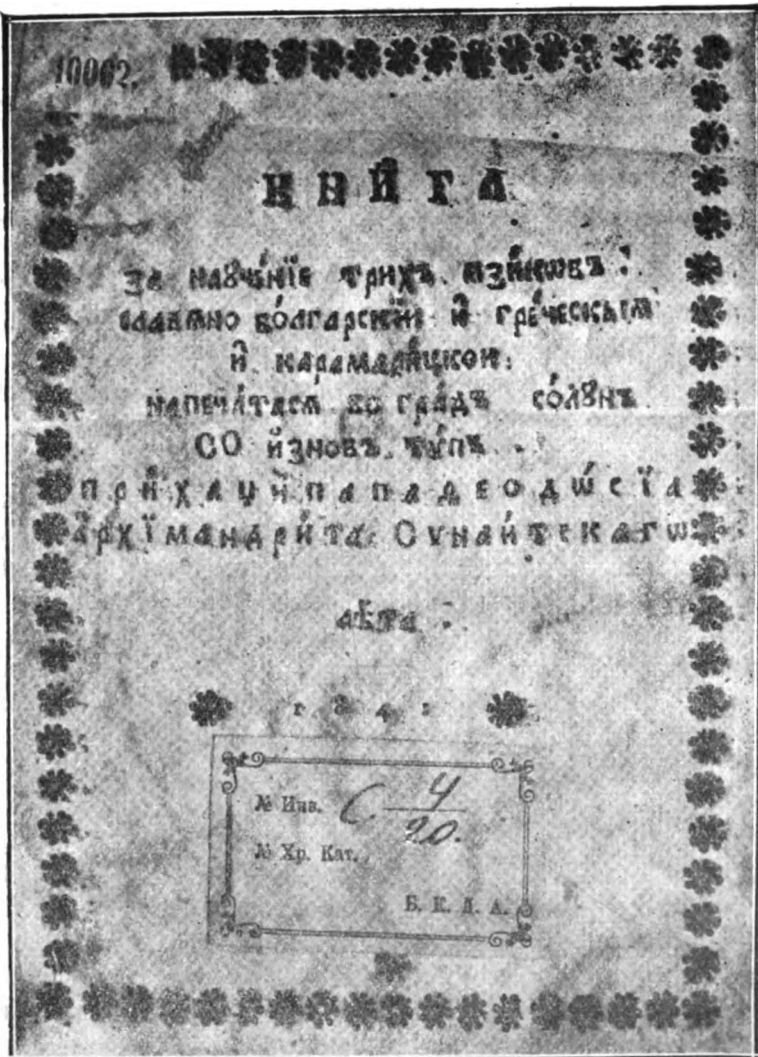 10062.
КНИ́ГА
ЗА НАꙋЧЕ́НЇЕ ТРИХЪ ꙖЗИ́КѠВЪ :
СЛАВѦНО БО́ЛГАРСКЇЙ И҆ ГРЕ́ЧЕСКЫѦ
И҆ КАРАМАНЛИ́ЦКОИ:
НАПЕЧА́ТАСѦ ВО ГРА́ДЪ СО́ЛꙋНЪ
СО И҆ЗНОВЪ ТѴ́ПЪ .
ПРИ ХАЦИ́ ПАПАѲЕОДѠ́СЇА
А҆РХЇМАНДРИ́ТА СѴНАИ́ТСКАГѠ:
ЛѢ́ТА :
1 8 4 1
№ Инв. С. 4/20.
№ Хр. Кат.
Б. К. Д. А.